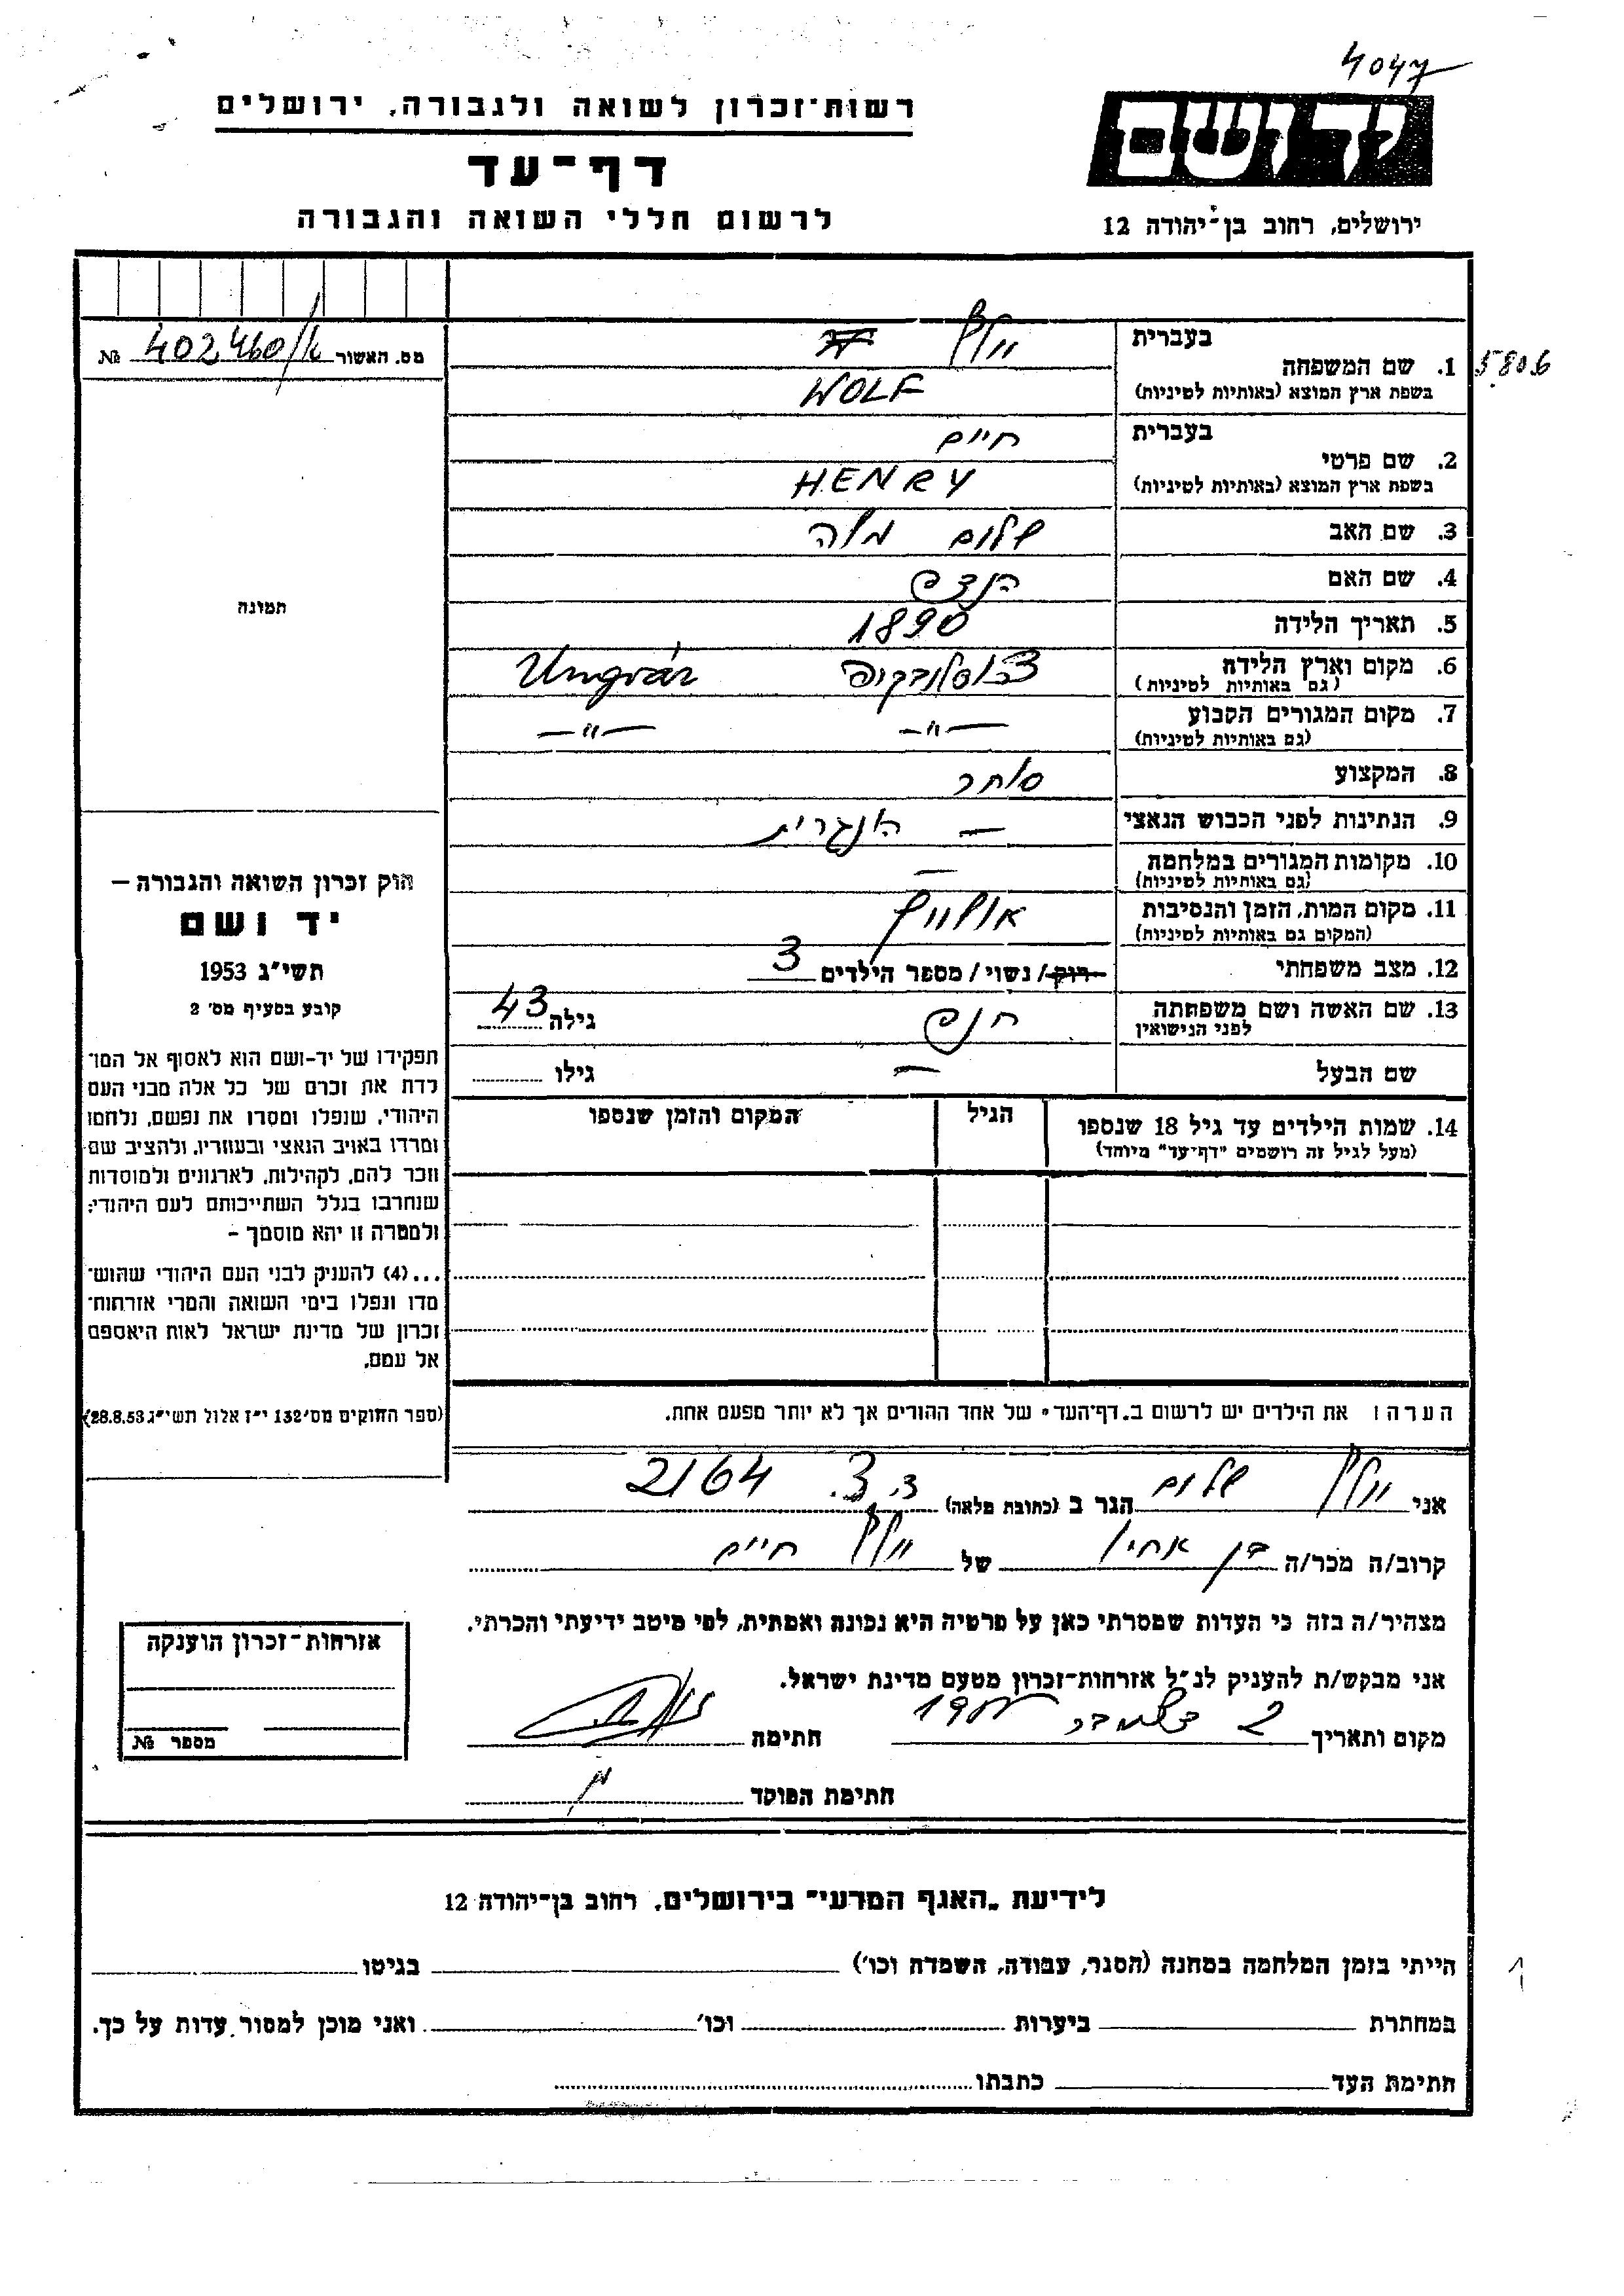 4047
רשות־זכרון לשואה ולגבורה, ירושלים
יד ושם
דף־עד
לרשום חללי השואה והגבורה
ירושלים, רחוב בן־יהודה 12
מס. האשור 402460/א №
5806
1. שם המשפחה
בעברית וולף
בשפת ארץ המוצא (באותיות לטיניות) WOLF
2. שם פרטי
בעברית חיים
בשפת ארץ המוצא (באותיות לטיניות) HENRY
3. שם האב שלום משה
4. שם האם
5. תאריך הלידה 1890
6. מקום וארץ הלידה (גם באותיות לטיניות) Ungvár
7. מקום המגורים הקבוע (גם באותיות לטיניות) —"— —"—
8. המקצוע סוחר
9. הנתינות לפני הכבוש הנאצי — הונגרית
10. מקומות המגורים במלחמה (גם באותיות לטיניות) —
11. מקום המות, הזמן והנסיבות (המקום גם באותיות לטיניות) אושוויץ
12. מצב משפחתי רווק/ נשוי/ מספר הילדים 3
13. שם האשה ושם משפחתה לפני הנישואין גילה 43
שם הבעל — גילו
14. שמות הילדים עד גיל 18 שנספו
(מעל לגיל זה רושמים "דף־עד" מיוחד)
הגיל
המקום והזמן שנספו
תמונה
חוק זכרון השואה והגבורה –
יד ושם
תשי"ג 1953
קובע בסעיף מס' 2
תפקידו של יד-ושם הוא לאסוף אל המו־
לדת את זכרם של כל אלה מבני העם
היהודי, שנפלו ומסרו את נפשם, נלחמו
ומרדו באויב הנאצי ובעוזריו, ולהציב שם
וזכר להם, לקהילות, לארגונים ולמוסדות
שנחרבו בגלל השתייכותם לעם היהודי;
ולמטרה זו יהא מוסמך –
...(4) להעניק לבני העם היהודי שהוש־
מדו ונפלו בימי השואה והמרי אזרחות־
זכרון של מדינת ישראל לאות היאספם
אל עמם.
(ספר החוקים מס' 132 י"ז אלול תשי"ג 28.8.53)
הערה: את הילדים יש לרשום ב„דף־העד" של אחד ההורים אך לא יותר מפעם אחת.
אני וולף שלום הגר ב (כתובת מלאה) 2164
קרוב/ה מכר/ה בן אחיו של וולף חיים
מצהיר/ה בזה כי העדות שמסרתי כאן על פרטיה היא נכונה ואמתית, לפי מיטב ידיעתי והכרתי.
אני מבקש/ת להעניק לנ"ל אזרחות־זכרון מטעם מדינת ישראל.
מקום ותאריך 2 דצמבר חתימה
חתימת הפוקד
אזרחות־זכרון הוענקה
מספר №
לידיעת „האגף המדעי" בירושלים, רחוב בן־יהודה 12
הייתי בזמן המלחמה במחנה (הסגר, עבודה, השמדה וכו') בגיטו
במחתרת ביערות וכו' ואני מוכן למסור עדות על כך.
חתימת העד כתבתו
1